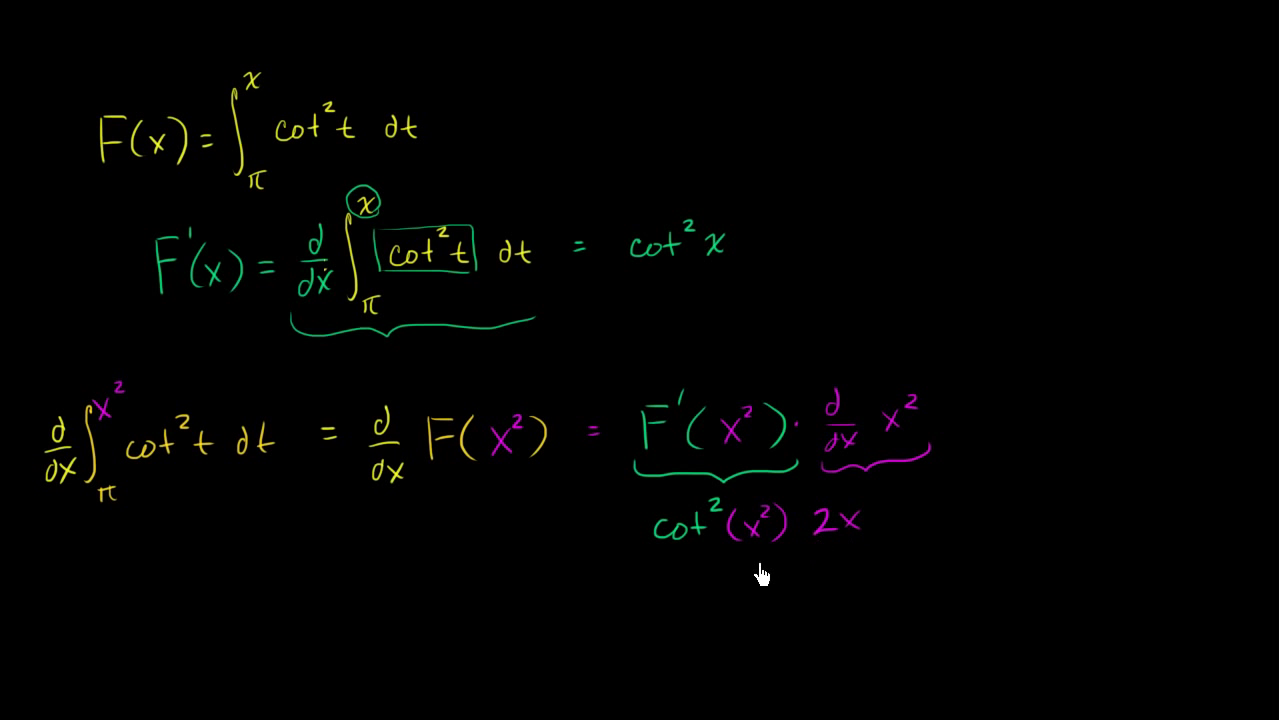 F(x) = ∫_π^x cot² t dt
F'(x) = d/dx ∫_π^x cot² t dt = cot² x
d/dx ∫_π^x² cot² t dt = d/dx F(x²) = F'(x²) · d/dx x²
cot²(x²) 2x